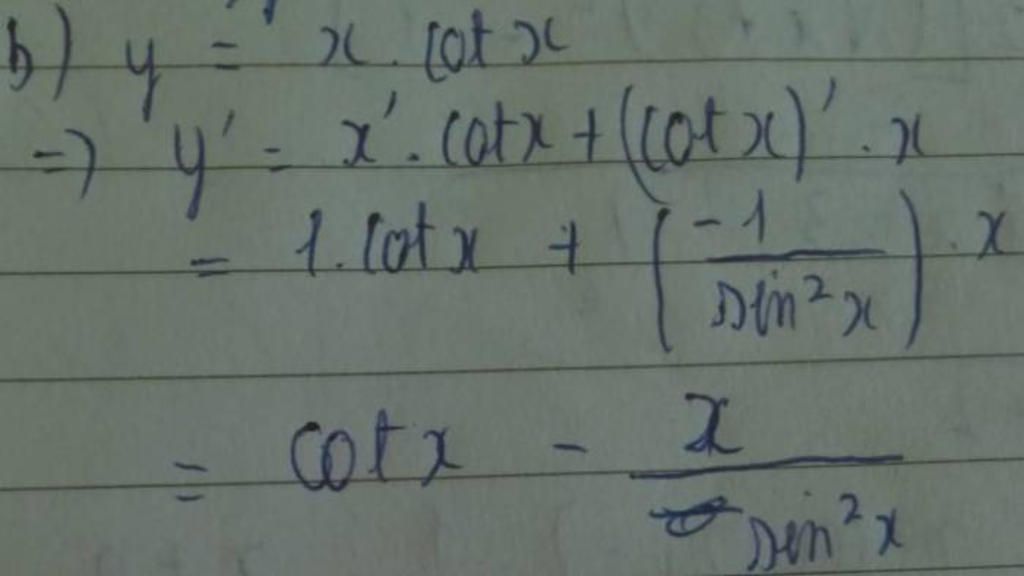 b) y = x . cot x
=> y' = x' . cot x + (cot x)' . x
= 1 . cot x + (-1 / sin² x) . x
= cot x - x / sin² x